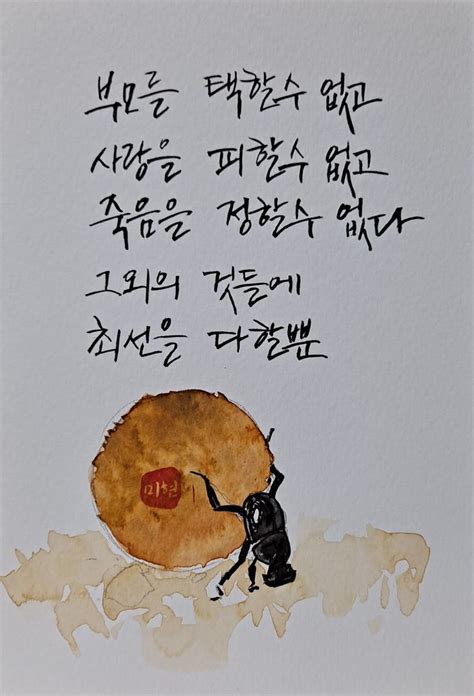 부모를 택할수 없고
사랑을 피할수 없고
죽음을 정할수 없다
그외의 것들에
최선을 다할뿐
미현